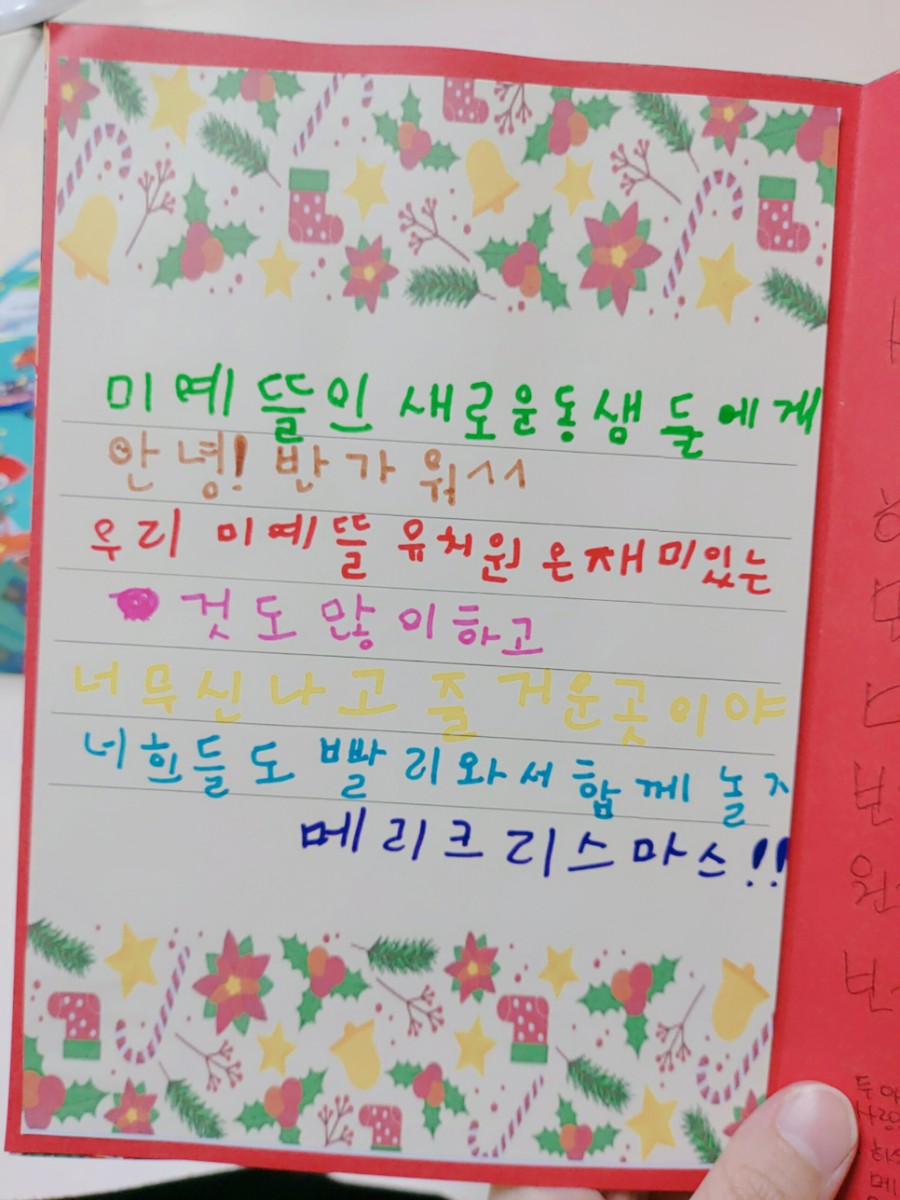 미예뜰의 새로운동생들에게
안녕! 반가워^^
우리 미예뜰 유치원은재미있는
것도 많이하고
너무신나고 즐거운곳이야
너희들도 빨리와서 함께 놀자
메리크리스마스!!